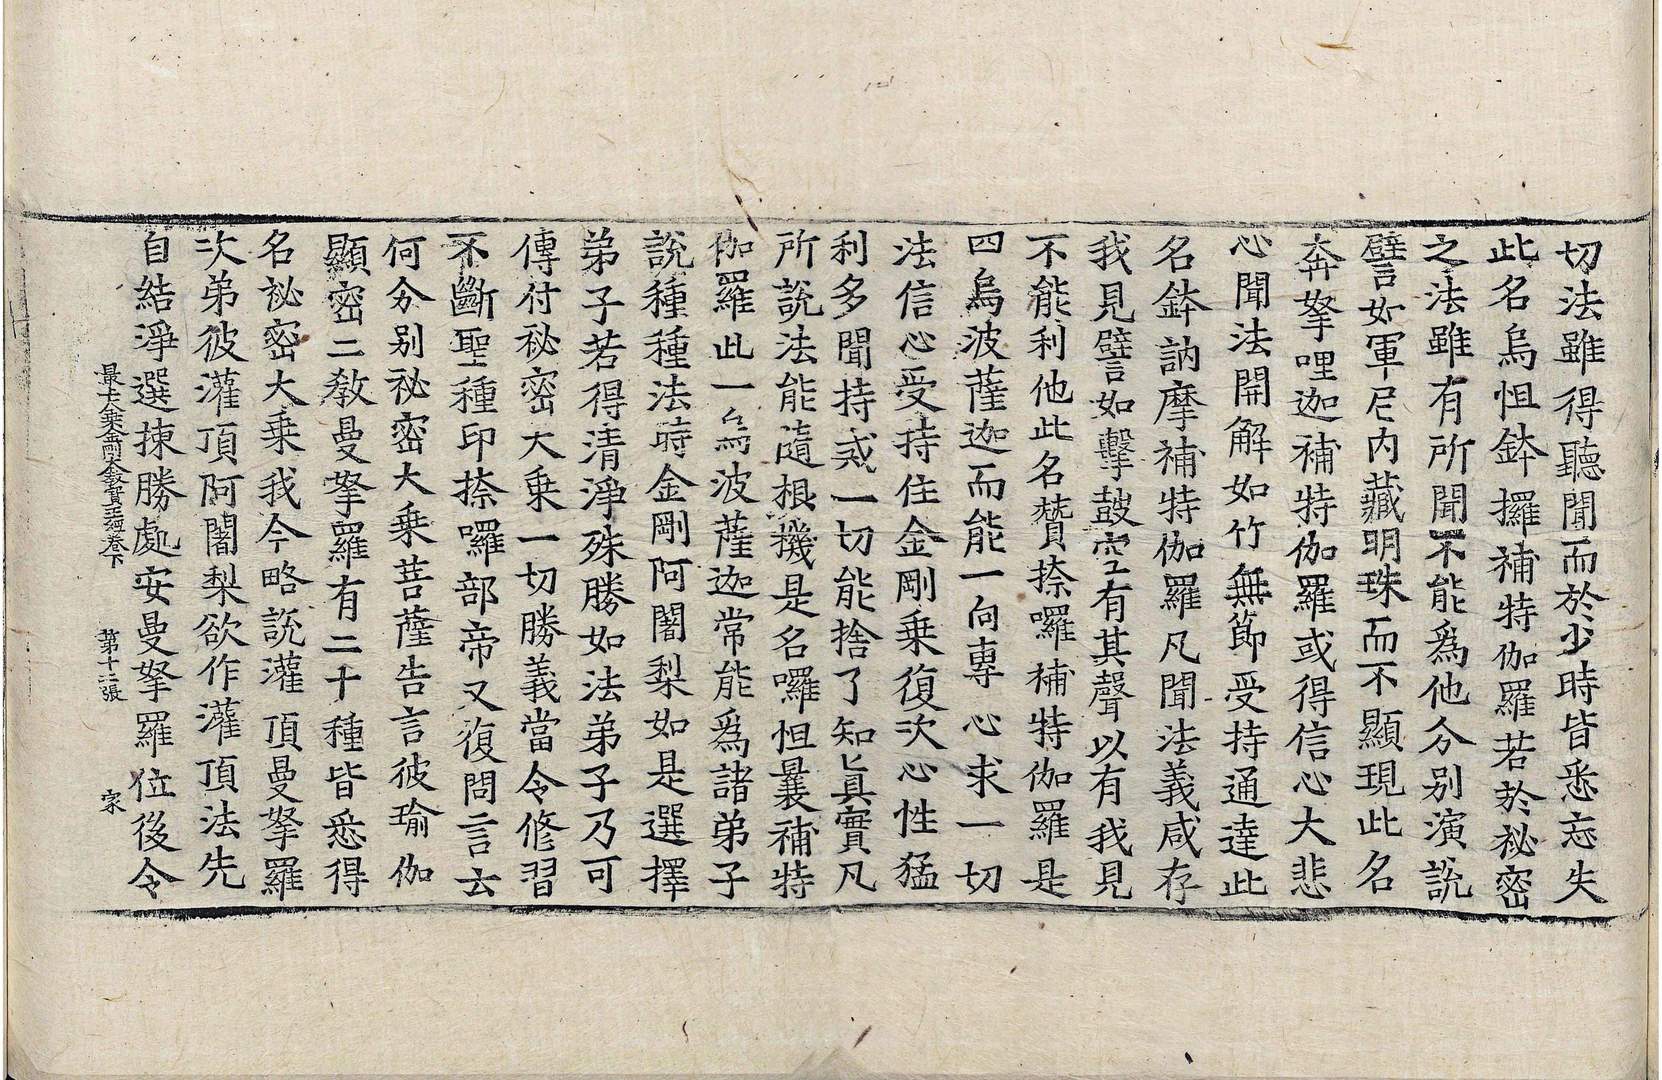 切法雖得聽聞而於少時皆悉忘失
此名烏怛鉢攞補特伽羅若於秘密
之法雖有所聞不能爲他分別演說
譬如軍尼內藏明珠而不顯現此名
奔拏哩迦補特伽羅或得信心大悲
心聞法開解如竹無節受持通達此
名鉢訥摩補特伽羅凡聞法義咸存
我見譬如擊鼓空有其聲以有我見
不能利他此名贊捺囉補特伽羅是
四烏波薩迦而能一向專心求一切
法信心受持住金剛乘復次心性猛
利多聞持惑一切能捨了知眞實凡
所說法能隨根機是名囉怛曩補特
伽羅此一烏波薩迦常能爲諸弟子
說種種法時金剛阿闍梨如是選擇
弟子若得清淨殊勝如法弟子乃可
傳付秘密大乘一切勝義當令修習
不斷聖種印捺囉部帝又復問言云
何分別祕密大乘菩薩告言彼瑜伽
顯密二教曼拏羅有二十種皆悉得
名祕密大乘我今略說灌頂曼拏羅
次弟彼灌頂阿闍梨欲作灌頂法先
自結淨選揀勝處安曼拏羅位後令
最上大乘金剛大教寶王經卷下 第十二張 家